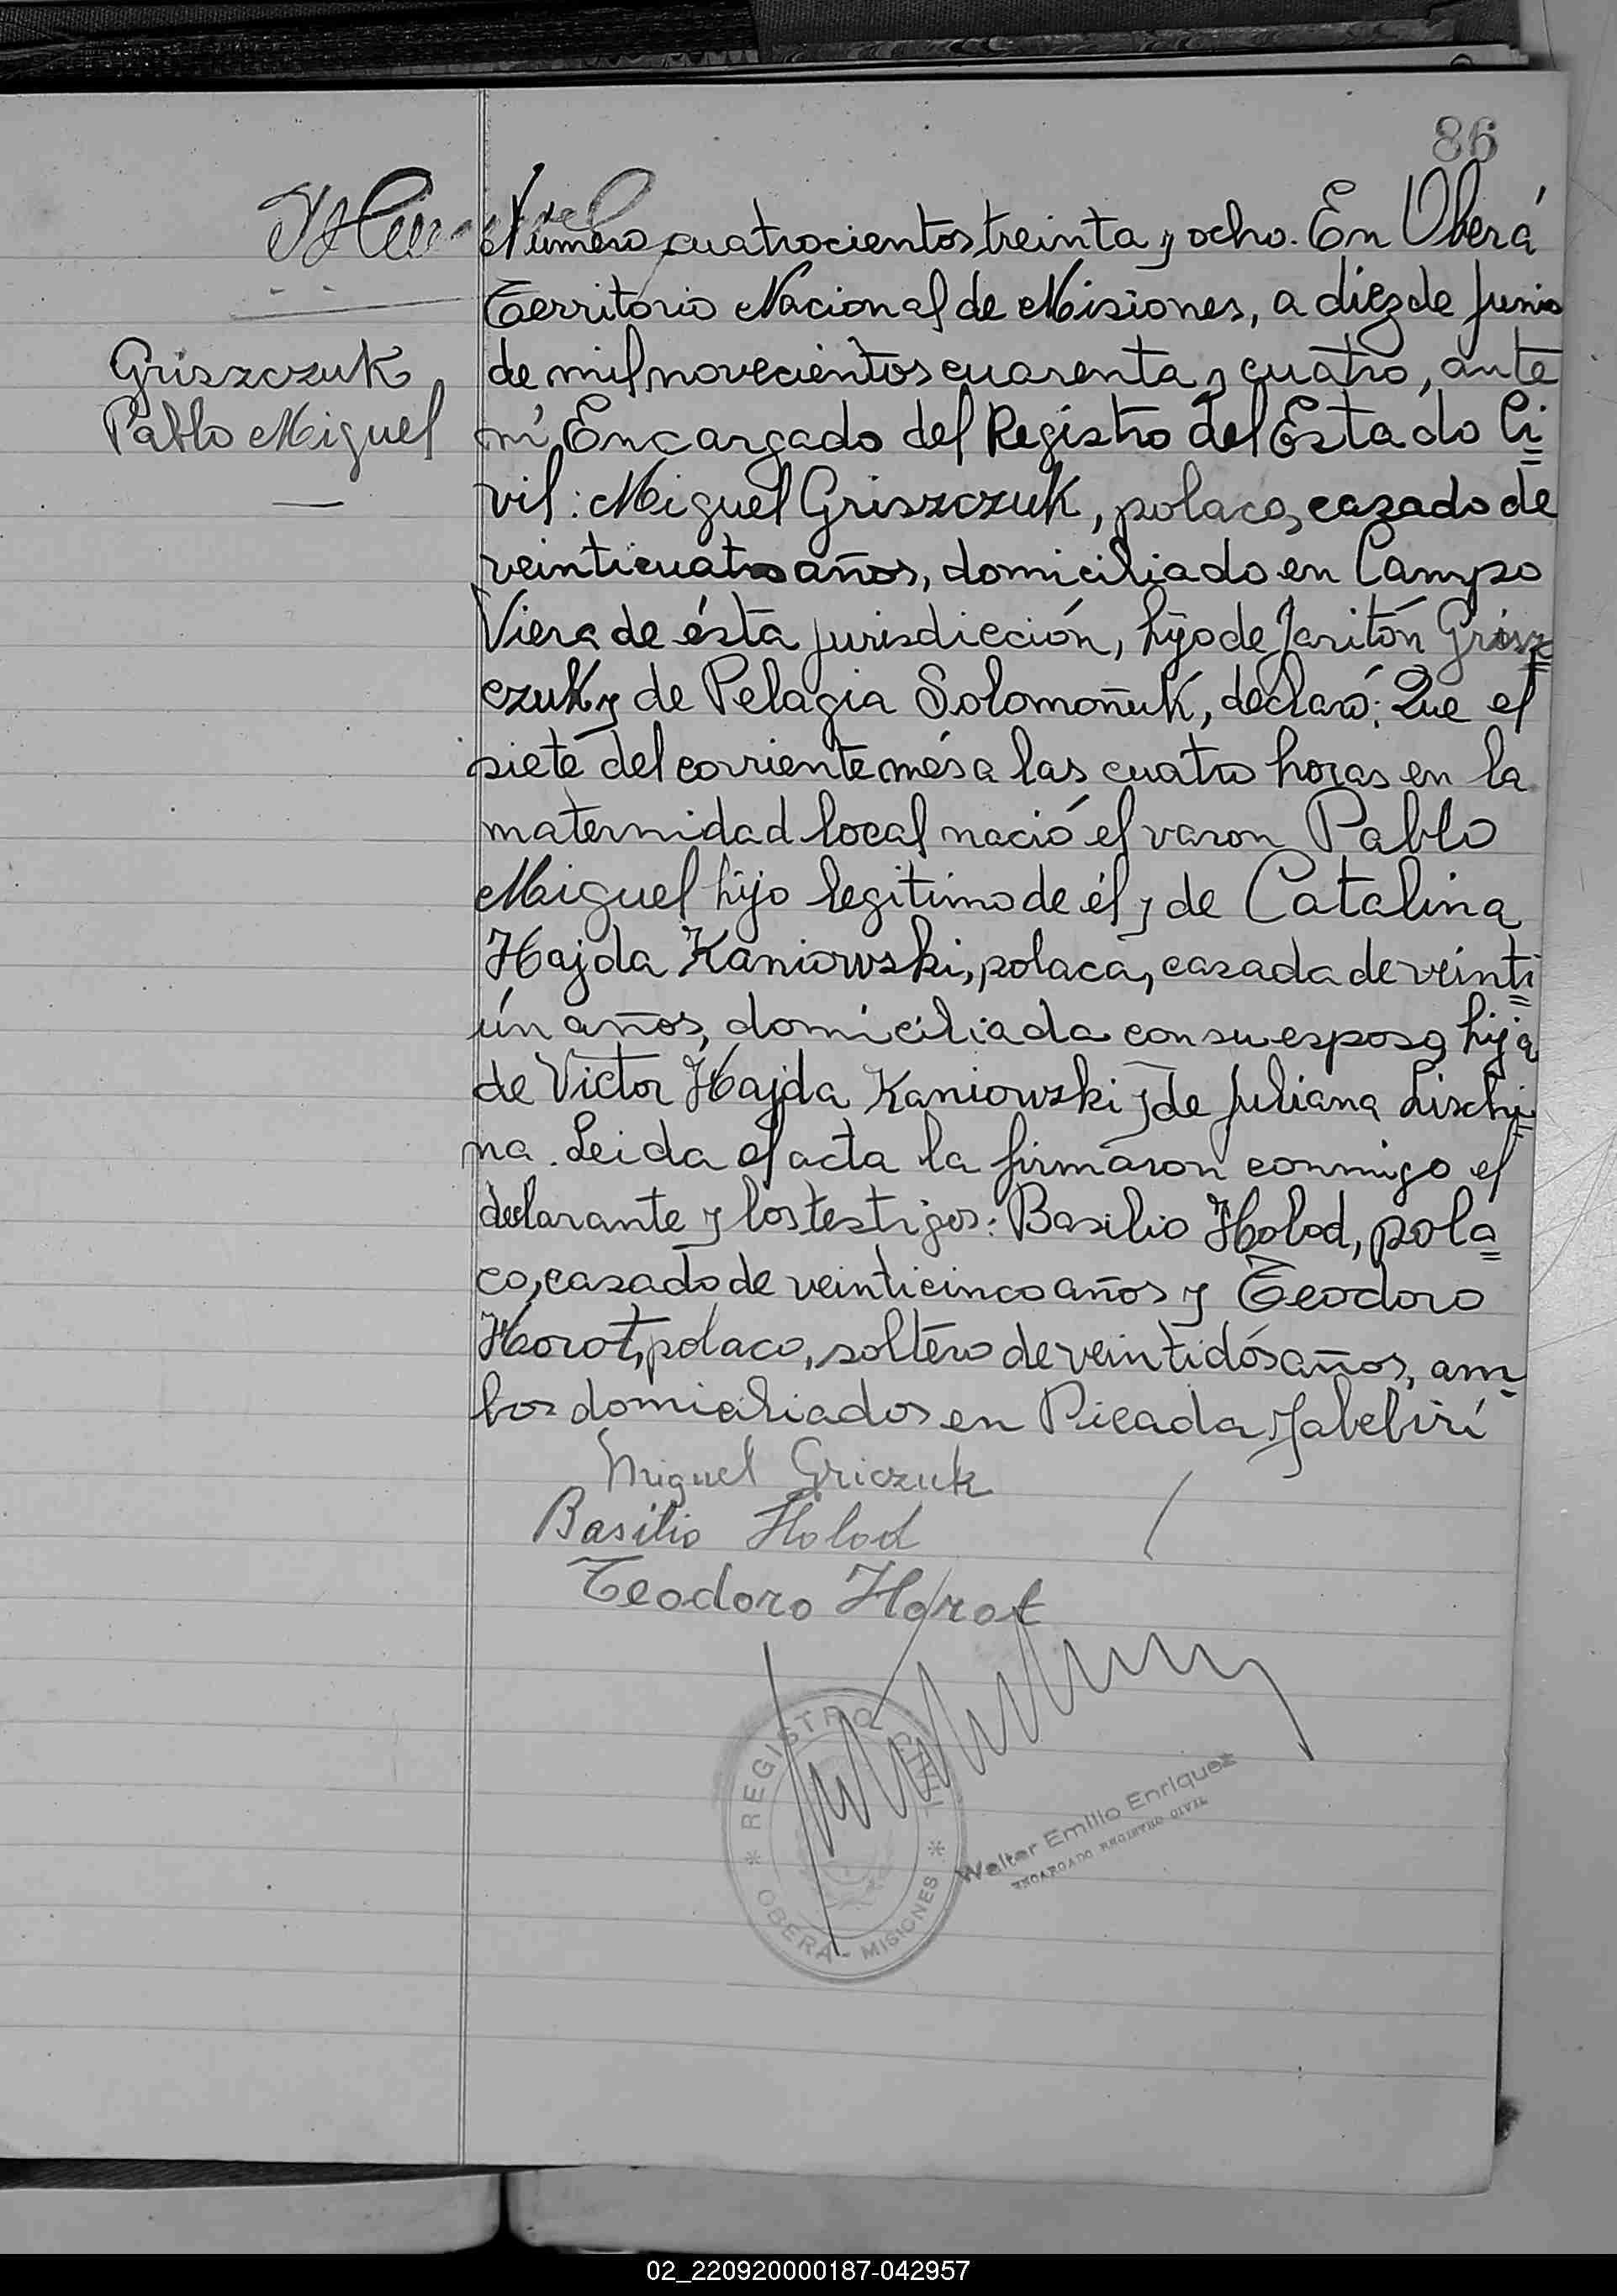 86
Número cuatrocientos treinta y ocho. En Oberá
Territorio Nacional de Misiones, a diez de Junio
Griszczuk
de mil novecientos cuarenta y cuatro, ante
Pablo Miguel
mí, Encargado del Registro del Estado Ci=
vil: Miguel Griszczuk, polaco, casado de
veinticuatro años, domiciliado en Campo
Viera de ésta jurisdicción, hijo de Jaritón Grisz=
czuk y de Pelagia Solomoñuk, declaró: Que el
siete del corriente més a las cuatro horas en la
maternidad local nació el varon Pablo
Miguel hijo legitimo de él y de Catalina
Hajda Kaniowski, polaca, casada de veinti=
ún años, domiciliada con su esposo, hija
de Victor Hajda Kaniowski y de Juliana Lischi=
na. Leida el acta la firmaron conmigo el
declarante y los testigos: Basilio Holod, pola=
co, casado de veinticinco años y Teodoro
Horot, polaco, soltero de veintidós años, am-
bos domiciliados en Picada Yabebirí
Miguel Griczuk
Basilio Holod
Teodoro Horot
* REGISTRO CIVIL *
OBERÁ - MISIONES
Walter Emilio Enriquez
ENCARGADO REGISTRO CIVIL
02_220920000187-042957